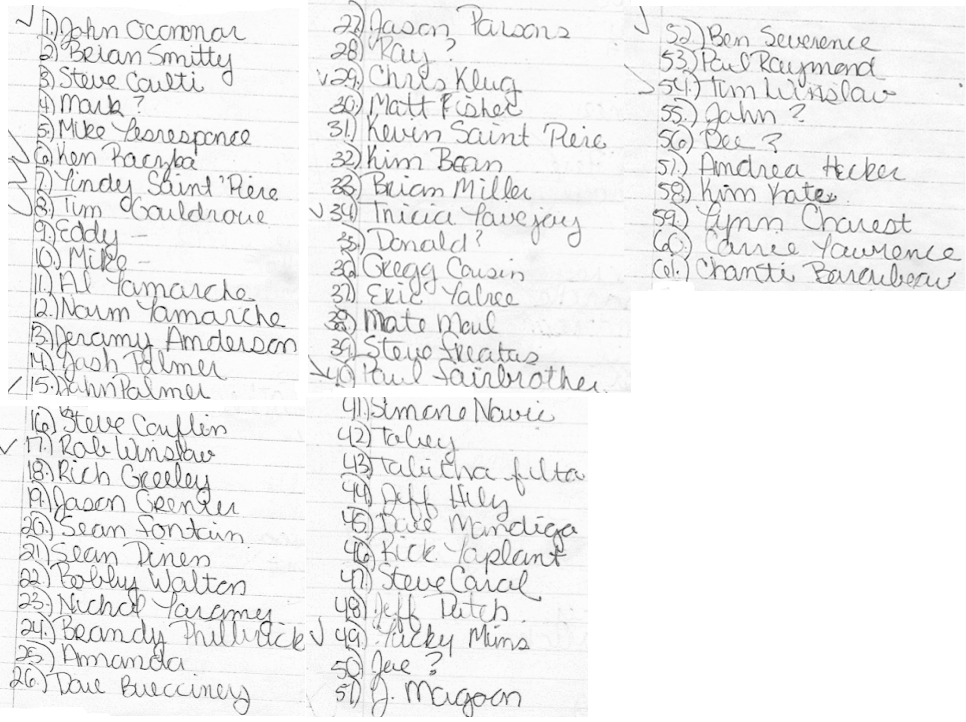 1.) John Oconnor
2.) Brian Smitty
3) Steve Caulti
4.) Mark ?
5.) Mike Lesresponce
6.) Ken Raczka
7.) Lindy Saint'Piere
8.) Tim Gouldroue
9.) Eddy -
10.) Mike -
11.) Al Lamarche
12.) Norm Lamarche
13.) Jeramy Anderson
14.) Josh Palmer
15.) John Palmer
16.) Steve Couflin
17.) Rob Winslow
18.) Rich Greeley
19.) Jason Grenier
20.) Sean Fontain
21.) Sean Dinen
22.) Bobby Walton
23.) Nichol Laramy
24.) Brandy Philbrick
25.) Amanda
26.) Dave
27.) Jason Parsons
28.) Ray ?
29.) Chris Klug
30.) Matt Fisher
31.) Kevin Saint'Piere
32.) Kim Bean
33.) Brian Miller
34.) Tricia Lovejoy
35.) Donald ?
36.) Gregg Cousin
37.) Eric Labree
38.) Mate Maul
39.) Steve Freatas
40.) Paul Fairbrother
41.) Simone
42.) Tobey
43.) Tabitha Filta
44.) Jeff Hily
45.) Dave Mandigo
46.) Rick Laplant
47.) Steve Caral
48.) Jeff Dutch
49.) Lucky Mims
50.) Joe ?
51.) J. Magoon
52.) Ben Severence
53.) Paul Raymond
54.) Tim Winslow
55.) John ?
56.) Dee ?
57.) Andrea Hecker
58.) Kim Kates
59.) Lynn Charest
60.) Carrie Lawrence
61.) Chanti